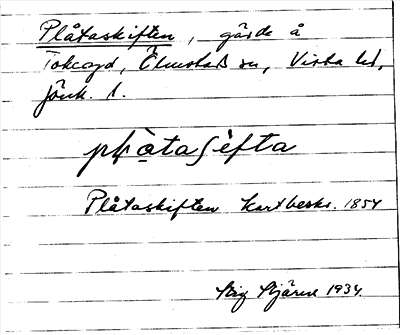 Plåtaskiften, gärde å
Tokaryd, Ölmstad sn, Vista hd,
Jönk. l.
Plåtaskiften Kartbeskr. 1854
Stig Stjärne 1934.